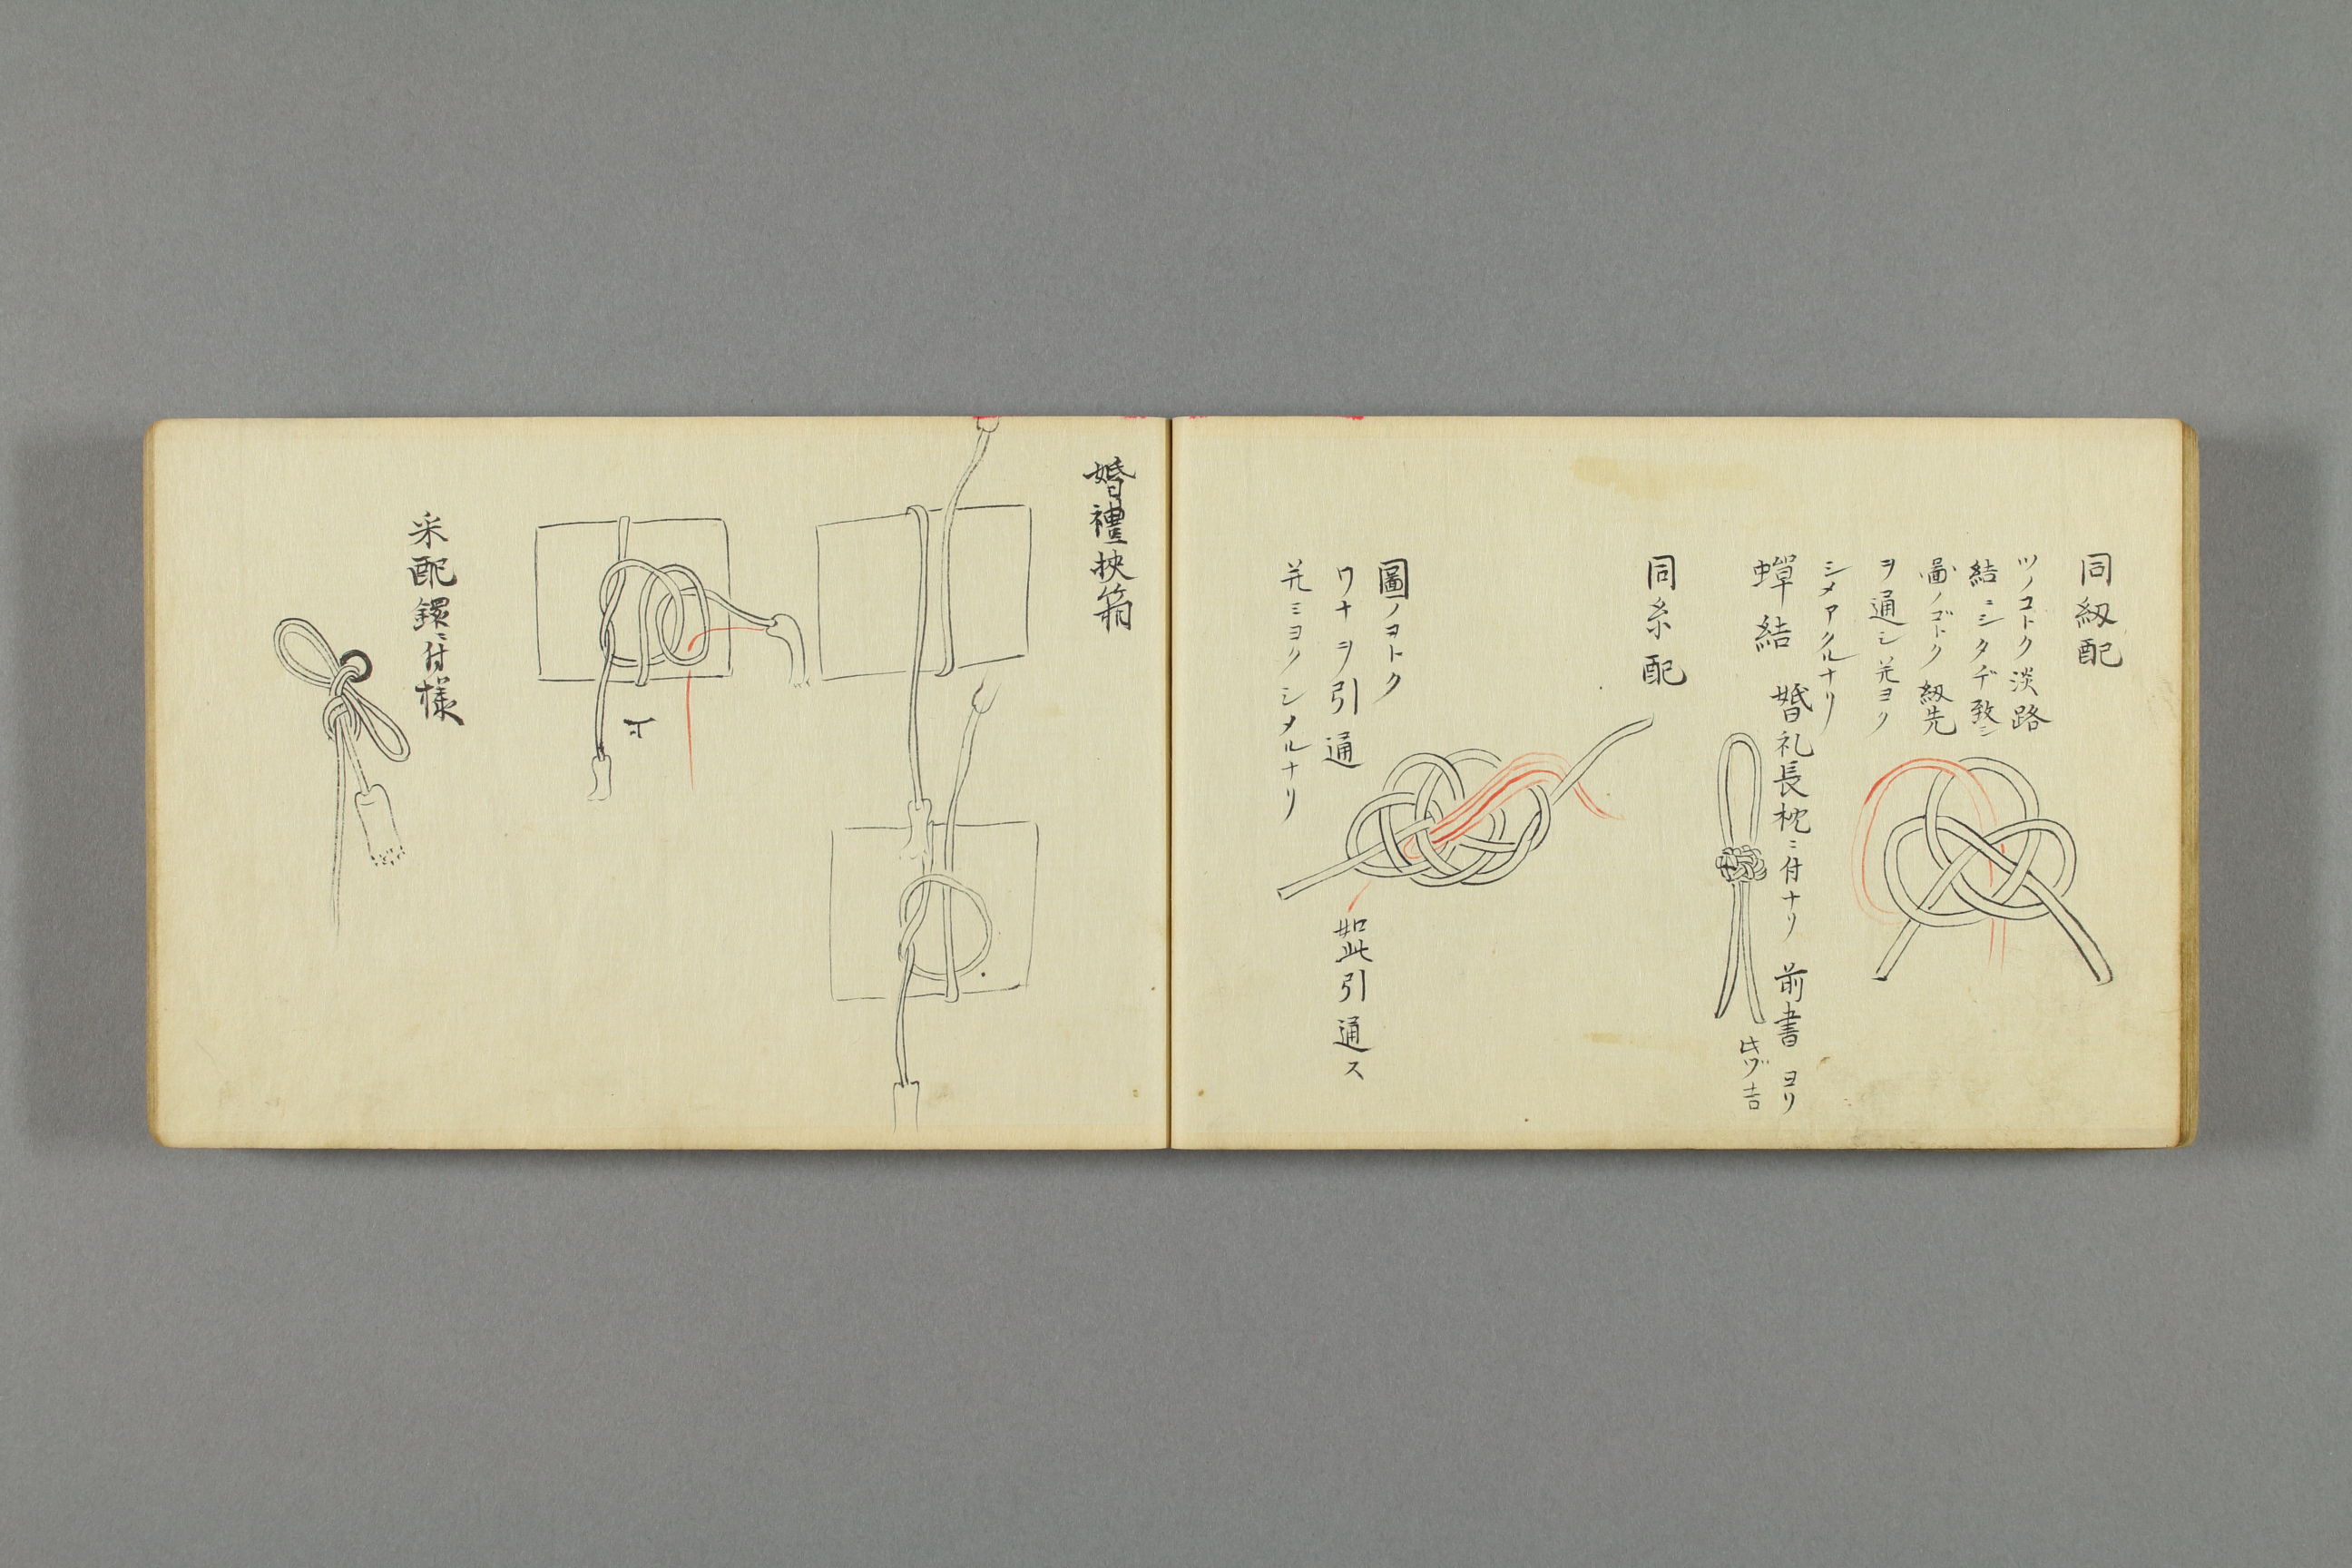 同紐配
ツノコトク淡路
結ニシタヂ致シ
圖ノゴトク紐先
ヲ通シ元ヨリ
シメアクルナリ
蝉結
婚礼長枕ニ付ナリ 前書ヨリ
同糸配
圖ノコトク
ワナヲ引通
元ミヨリシメルナリ
如此引通ス
婚禮挾箱
采配鐶ニ付様